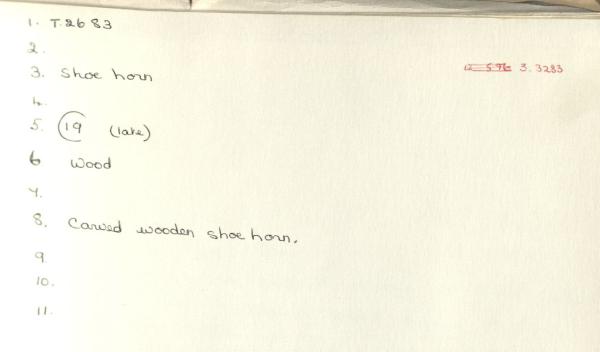 1. T.2683
2.
3. Shoe horn
3.3283
4.
5. 19 (late)
6 Wood
7.
8. Carved wooden shoe horn.
9.
10.
11.